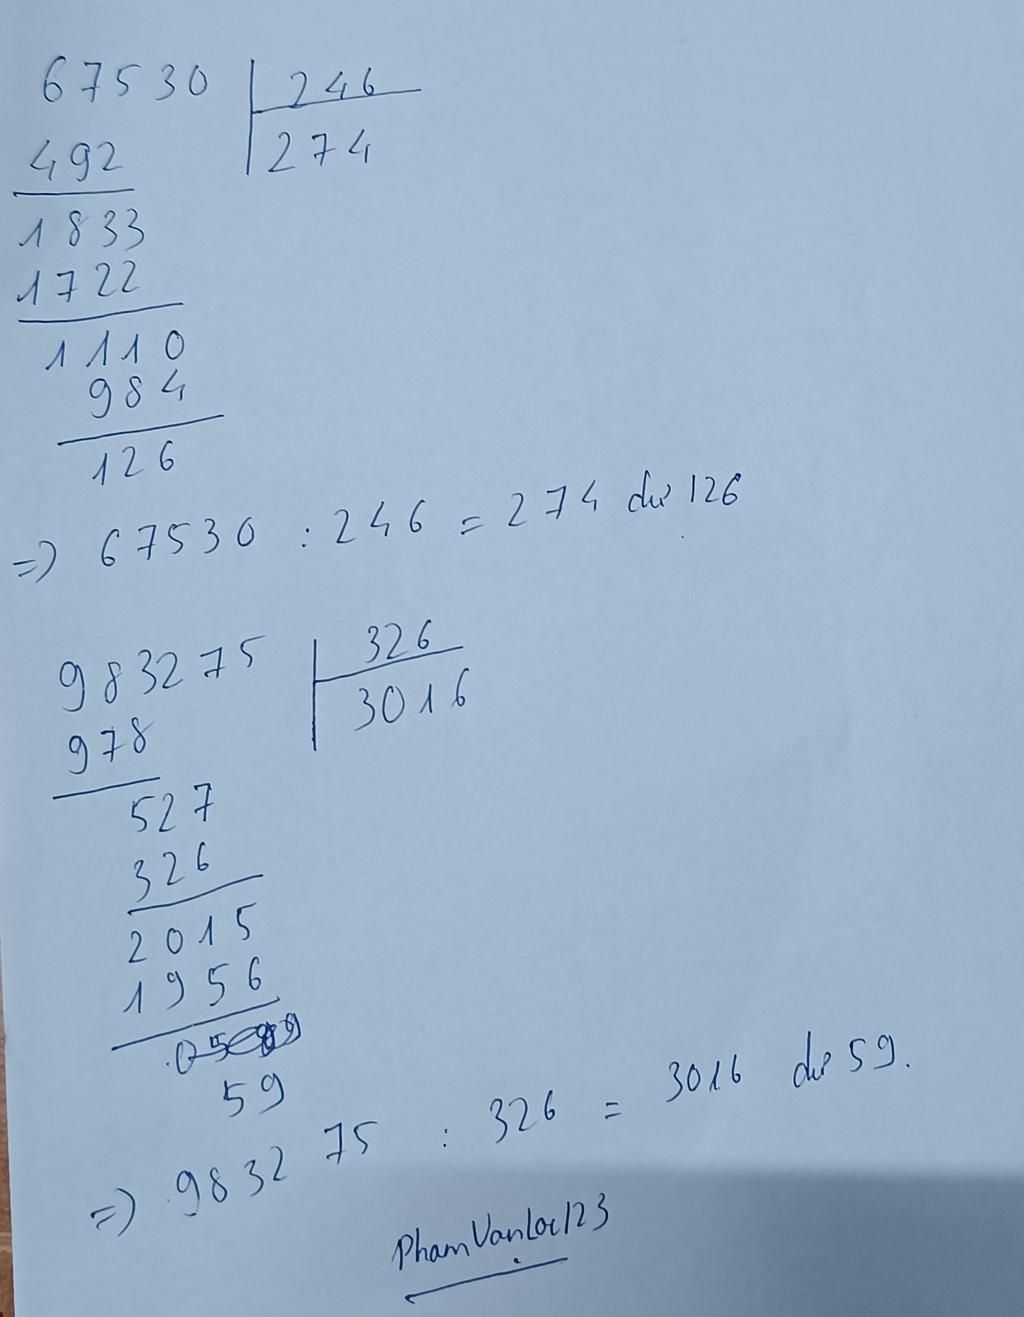 67530 246
492 274
1833
1722
1110
984
126
=> 67530 : 246 = 274 dư 126
983275 326
978 3016
527
326
2015
1956
59
=> 983275 : 326 = 3016 dư 59.
PhamVanLoc123